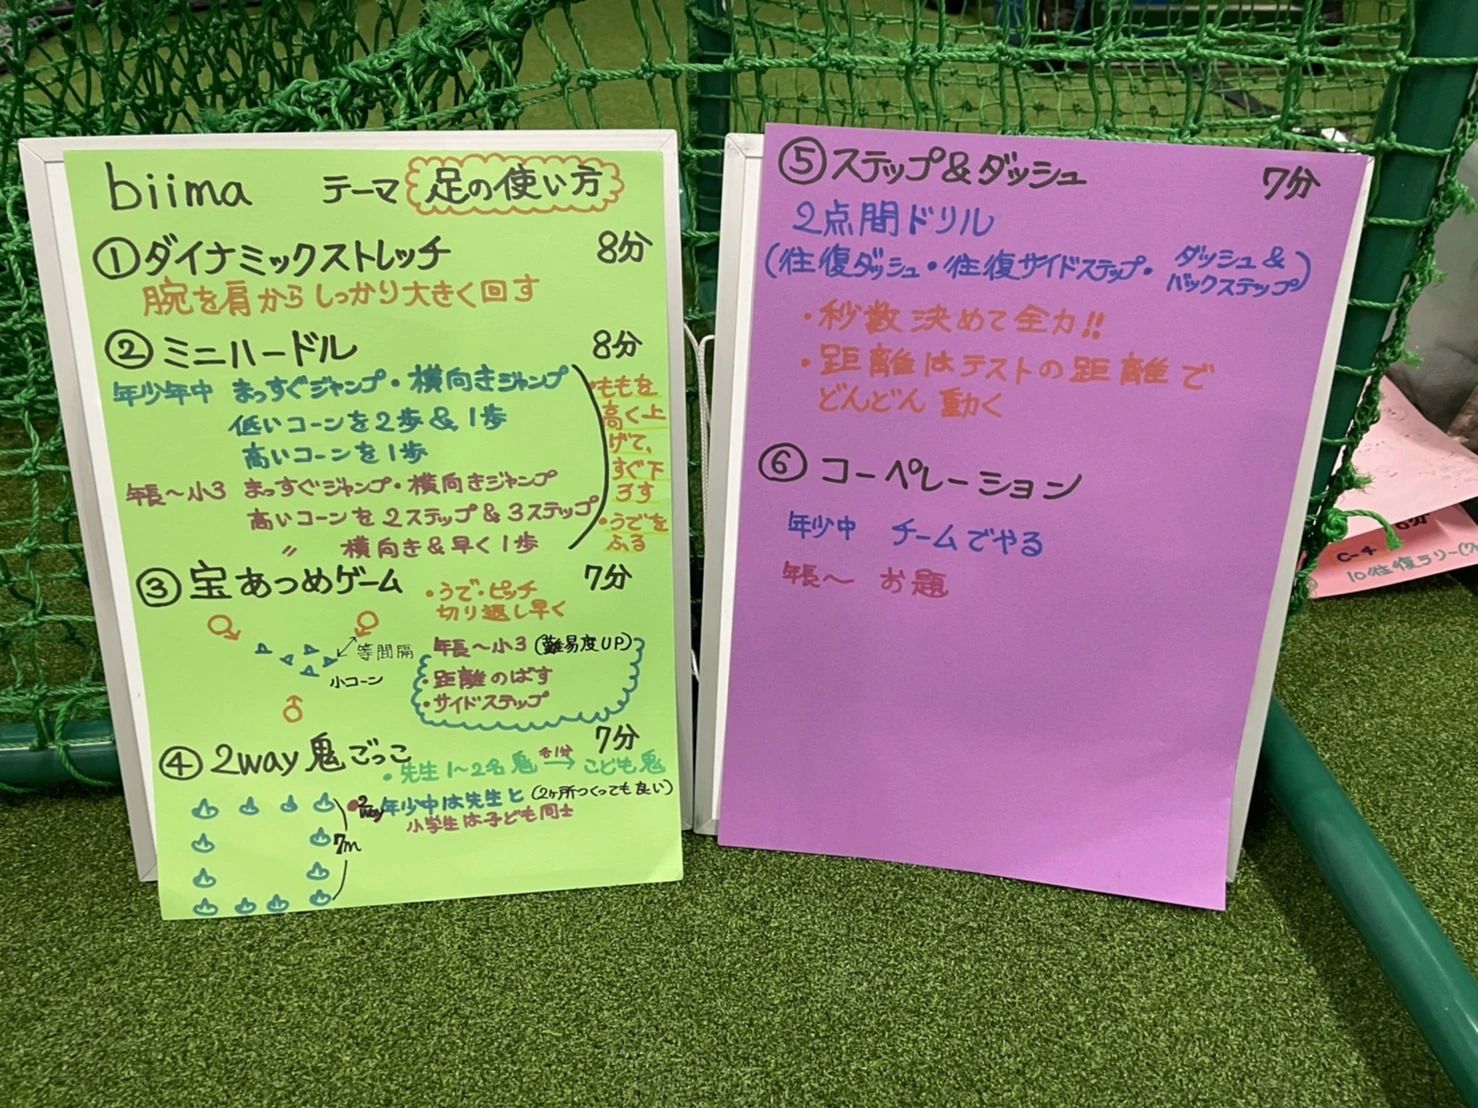 biima テーマ 足の使い方
①ダイナミックストレッチ 8分
腕を肩からしっかり大きく回す
②ミニハードル 8分
年少年中 まっすぐジャンプ・横向きジャンプ
低いコーンを2歩&1歩
高いコーンを1歩
年長〜小3 まっすぐジャンプ・横向きジャンプ
高いコーンを2ステップ&3ステップ
〃 横向き&早く1歩
・ももを
高く上
げて、
すぐ下
ろす
・うでを
ふる
③宝あつめゲーム 7分
・うで・ピッチ
切り返し早く
等間隔
小コーン
年長〜小3(難易度UP)
・距離のばす
・サイドステップ
④2way鬼ごっこ 7分
・先生1〜2名鬼 各1分 → こども鬼
2way 年少中は先生と(2ヶ所つくっても良い)
小学生は子ども同士
7m
⑤ステップ&ダッシュ 7分
2点間ドリル
(往復ダッシュ・往復サイドステップ・ダッシュ&
バックステップ)
・秒数決めて全力!!
・距離はテストの距離で
どんどん動く
⑥コーペレーション
年少中 チームでやる
年長〜 お題
C-4
10往復ラリー